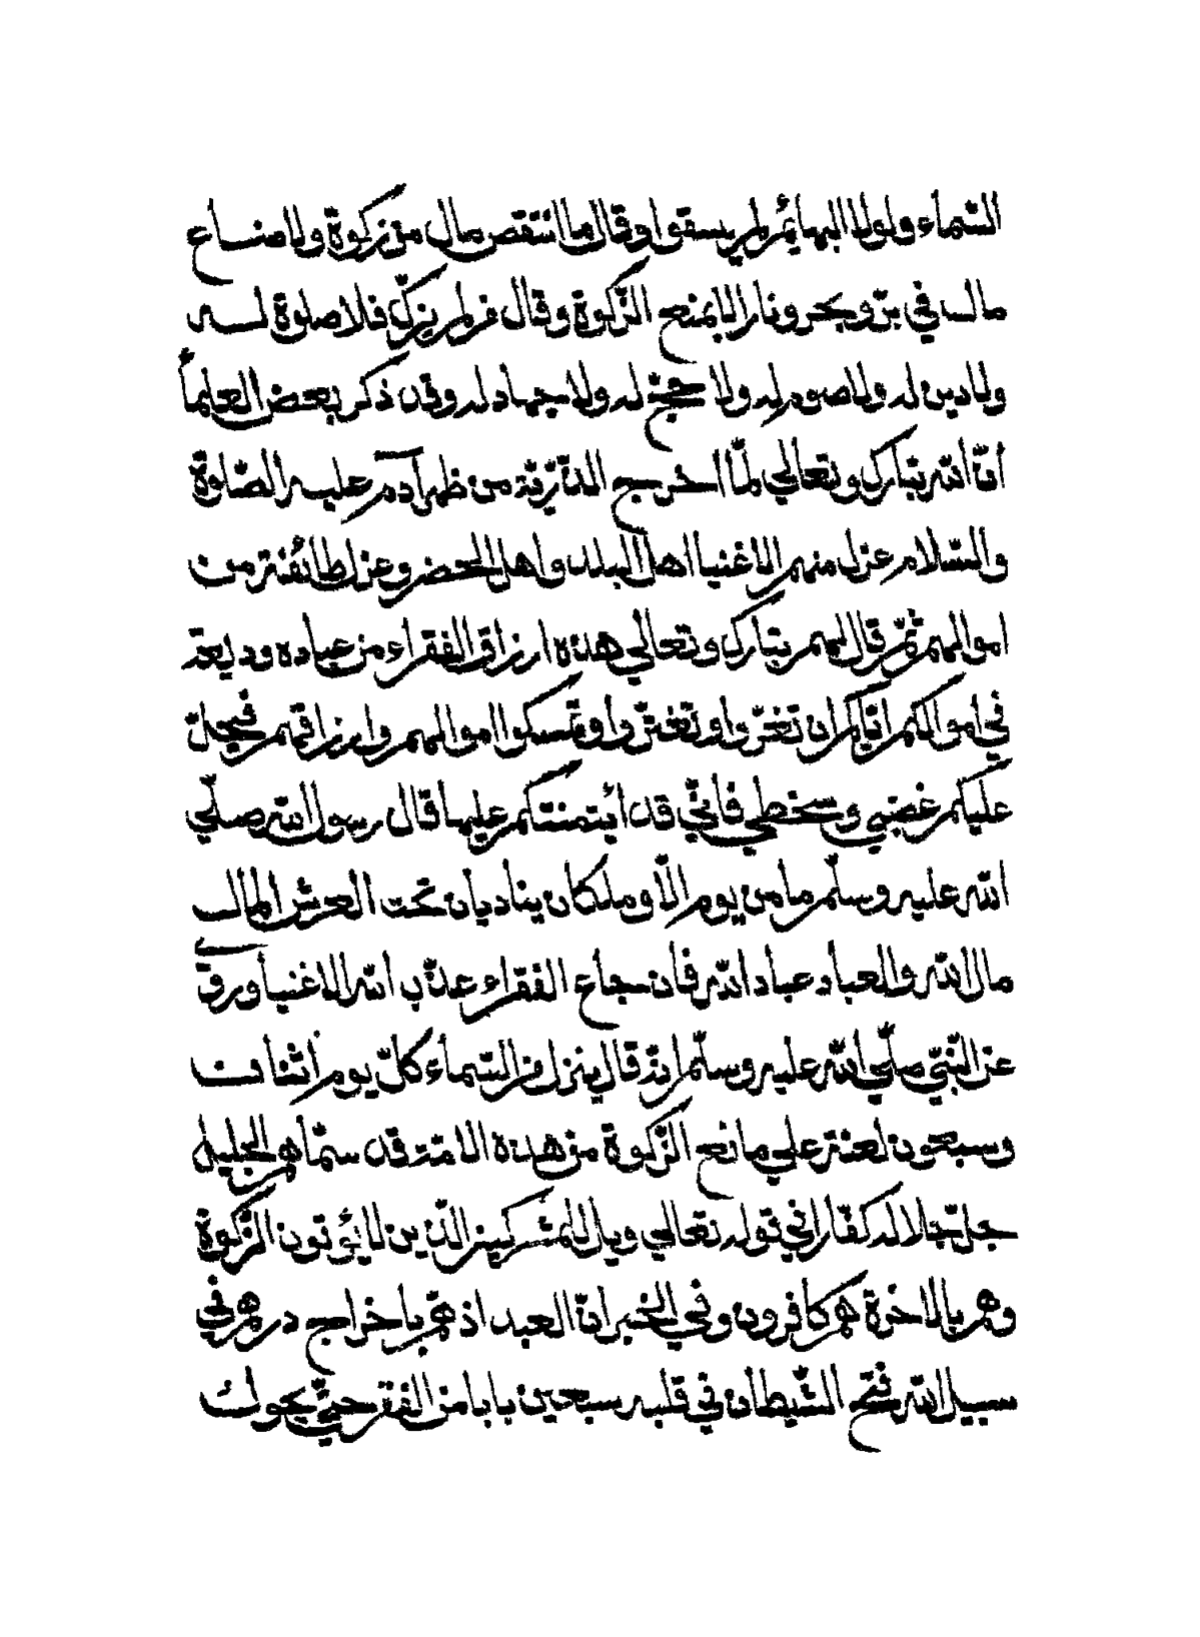 السّمآء ولولا البهائم لم يسقوا وقال ما انتقص مال من زكوة ولا ضاع
مال في برّ وبحر ونار الا بمنع الزّكوة وقال من لم يزكّ فلا صلوة له
ولا دين له ولا صوم له ولا حجّ له ولا جهاد له وقد ذكر بعض العلمآ
أنّ الله تبارك وتعالي لمّا اخرج الذّرّيّة من ظهر آدم عليه الصّلوة
والسّلام عزل منهم الاغنيا اهل البلد واهل الحضر وعزل طائفة من
اموالهم ثمّ قال لهم تبارك وتعالي هذه ارزاق الفقراء من عباده وديعة
في اموالكم ايّاكم ان تغترّوا وتغترّوا وتمسكوا اموالهم وارزاقهم فيحلّ
عليكم غضبي وسخطي فانّي قد ائتمنتكم عليها قال رسول الله صلّي
الله عليه وسلّم ما من يوم الّا وملكان يناديان تحت العرش المال
مال الله والعباد عباد الله فان جاع الفقراء عذّب الله الاغنيا وروي
عن النّبيّ صلّي الله عليه وسلّم انّه قال ينزل من السّمآء كلّ يوم أثنان
وسبعون لعنة علي مانع الزّكوة من هذه الامّة قد سمّاهم الجليل
جلّ جلاله كفّارا في قوله تعالي ويل للمشركين الّذين لا يؤتون الزّكوة
وهم بالاخرة هم كافرون وفي الخبر انّ العبد اذ همّ باخراج درهم في
سبيل الله فتح الشّيطان في قلبه سبعين بابا من الفقر حتّي يحول